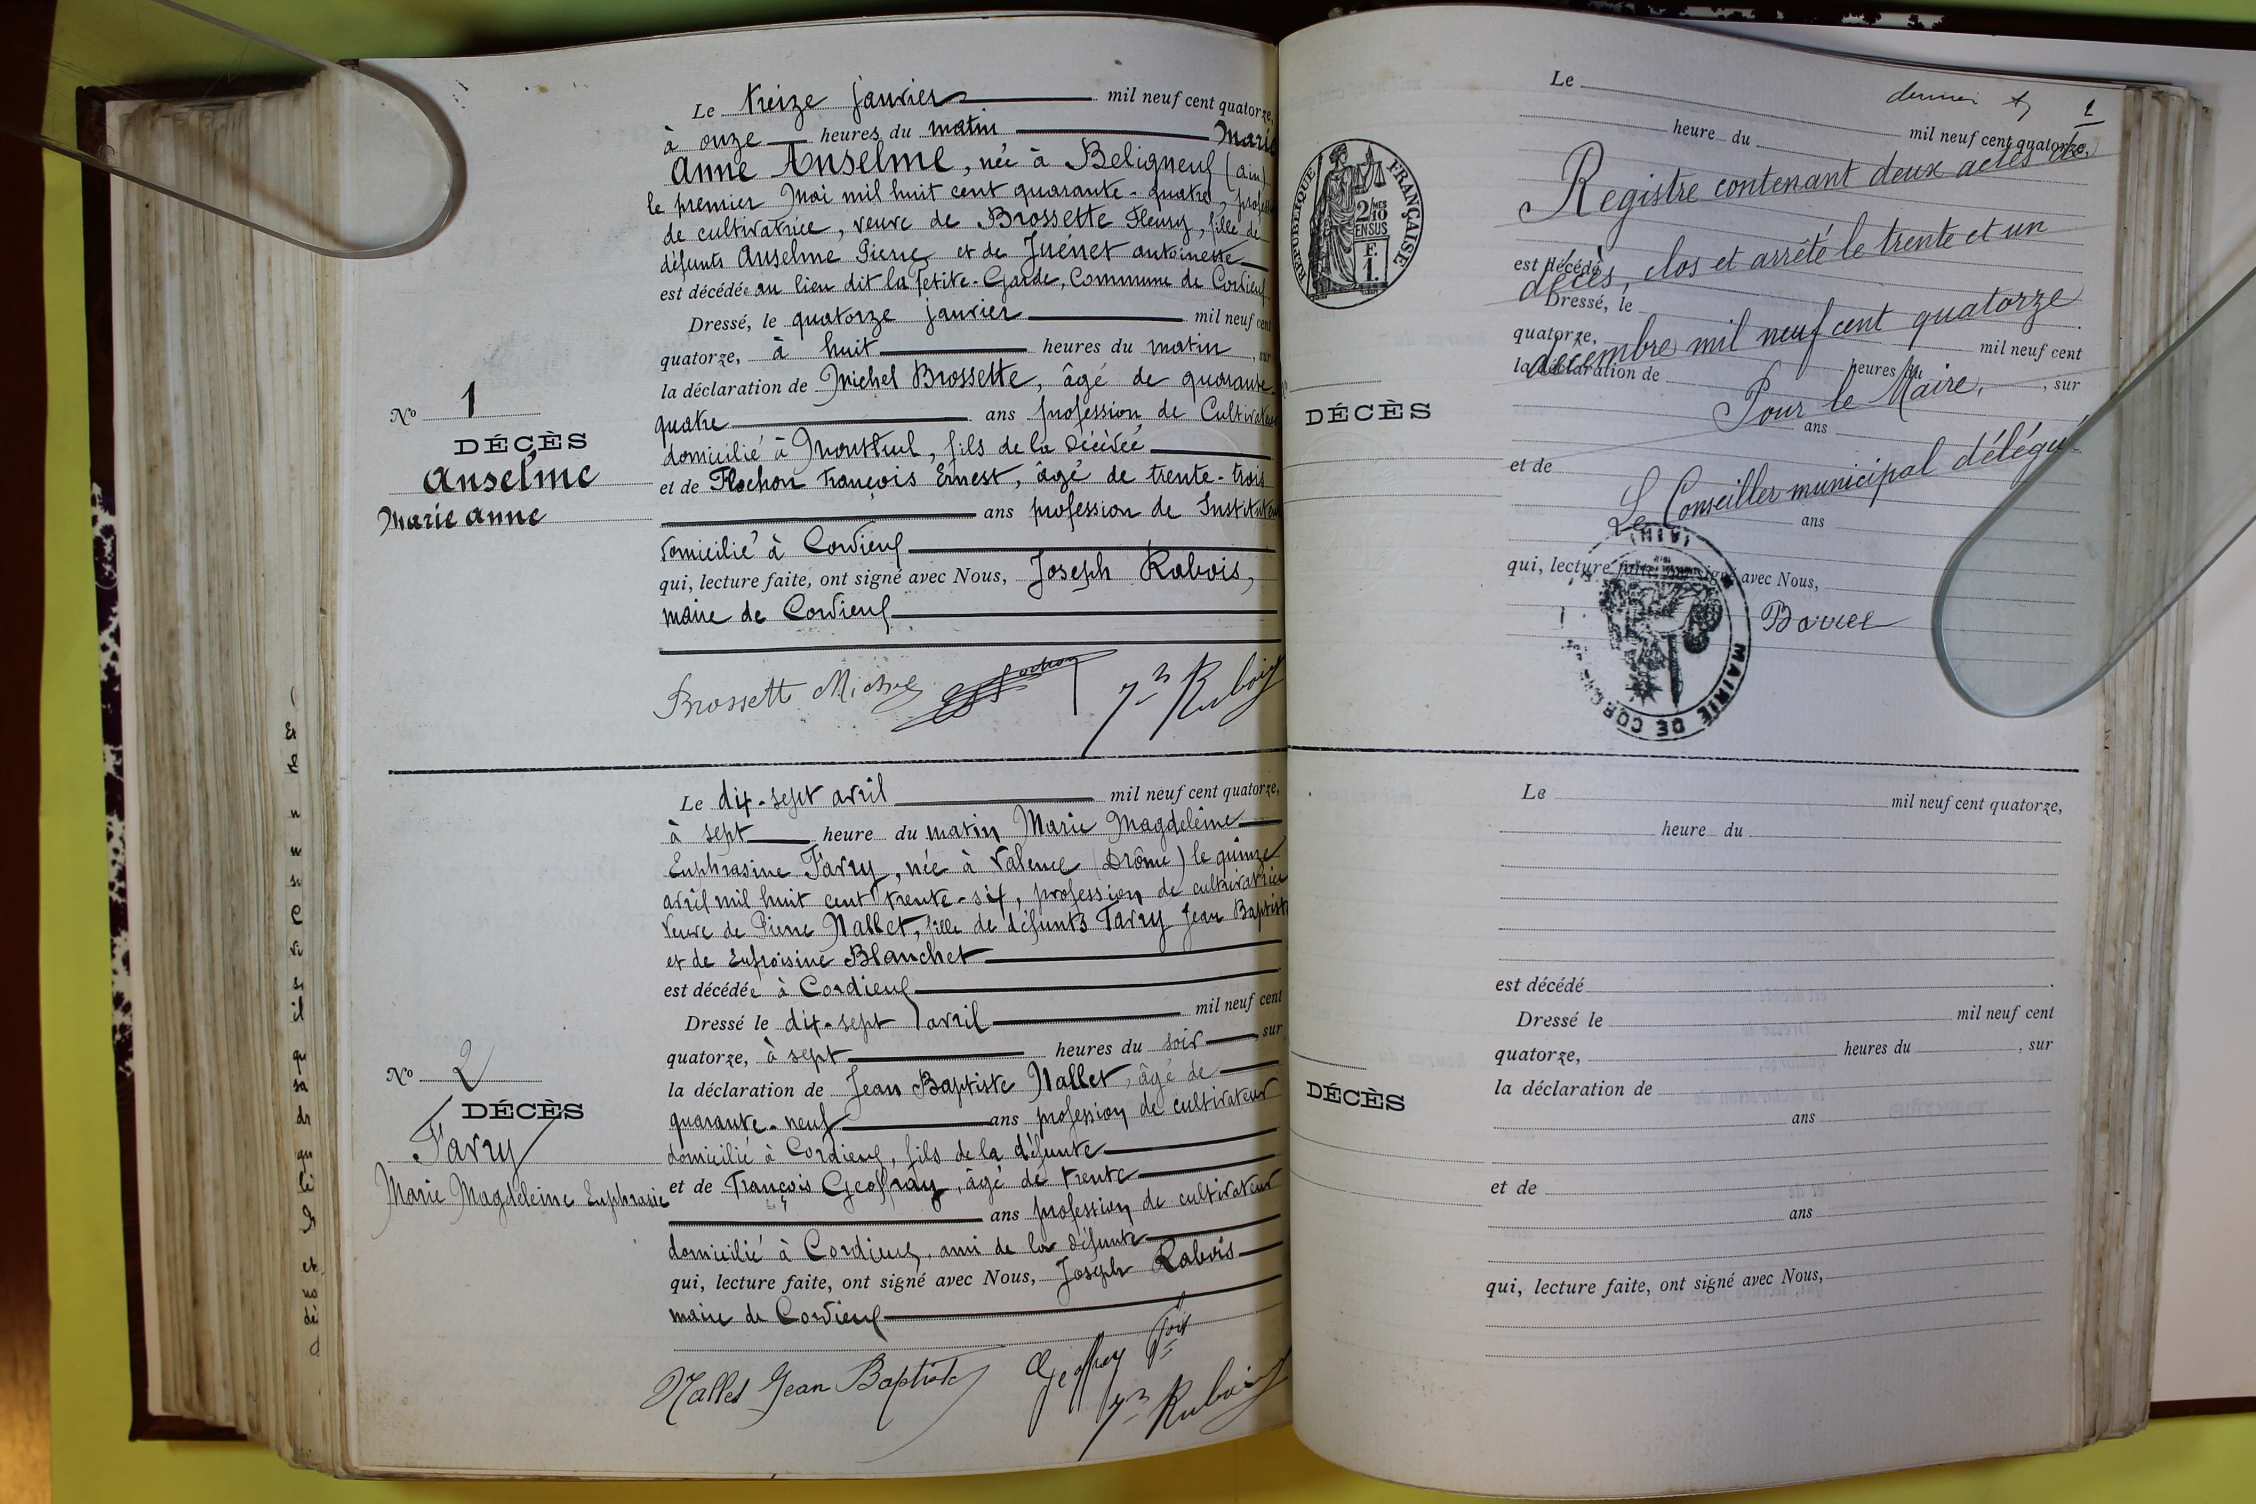 Le treize janvier mil neuf cent quatorze,
à onze heures du matin Marie
Anne Anselme, née à Beligneux (ain)
le premier Mai mil huit cent quarante-quatre, profession
de cultivatrice, veuve de Brossette Fleury, fille de
défunts Anselme Pierre et de Juénet antoinette
est décédée au lieu dit la petite-Garde, Commune de Cordieux
Dressé, le quatorze janvier mil neuf cent
quatorze, à huit heures du matin, sur
la déclaration de Michel Brossette, âgé de quarante
quatre ans profession de Cultivateur
domicilié à Montluel, fils de la décédée
et de Flochon François Ernest, âgé de trente-trois
ans profession de Instituteur
domicilié à Cordieux
qui, lecture faite, ont signé avec Nous, Joseph Rabois,
maire de Cordieux
No 1
DÉCÈS
Anselme
Marie anne
Brossette Michel
Flochon
Jh Rubois
Le dix-sept avril mil neuf cent quatorze,
à sept heure du matin Marie Magdeleine
Euphrasine Favry, née à Valence (Drôme) le quinze
avril mil huit cent trente-six, profession de cultivatrice
veuve de Pierre Nallet, fille de défunts Favry Jean Baptiste
et de Eufroisine Blanchet
est décédée à Cordieux
Dressé le dix-sept avril mil neuf cent
quatorze, à sept heures du soir, sur
la déclaration de Jean Baptiste Nallet, âgé de
quarante-neuf ans profession de cultivateur
domicilié à Cordieux, fils de la défunte
et de François Geoffray, âgé de trente
ans profession de cultivateur
domicilié à Cordieux, ami de la défunte
qui, lecture faite, ont signé avec Nous, Joseph Rabois
maire de Cordieux
No 2
DÉCÈS
Favry
Marie Magdeleine Euphrasie
Nallet Jean Baptiste
Geoffray fois
Jh Rubois
Le
mil neuf cent quatorze,
heure du
Registre contenant deux actes de
décès, clos et arrêté le trente et un
décembre mil neuf cent quatorze
Pour le Maire,
Le Conseiller municipal délégué
RÉPUBLIQUE FRANÇAISE
2/10 MES
EN SUS
1 F.
DÉCÈS
est décédé
Dressé, le
mil neuf cent
quatorze,
heures du
, sur
la déclaration de
ans
et de
ans
qui, lecture faite, ont signé avec Nous,
MAIRIE DE
(AIN)
Le
mil neuf cent quatorze,
heure du
est décédé
Dressé le
mil neuf cent
quatorze,
heures du
, sur
la déclaration de
ans
DÉCÈS
et de
ans
qui, lecture faite, ont signé avec Nous,